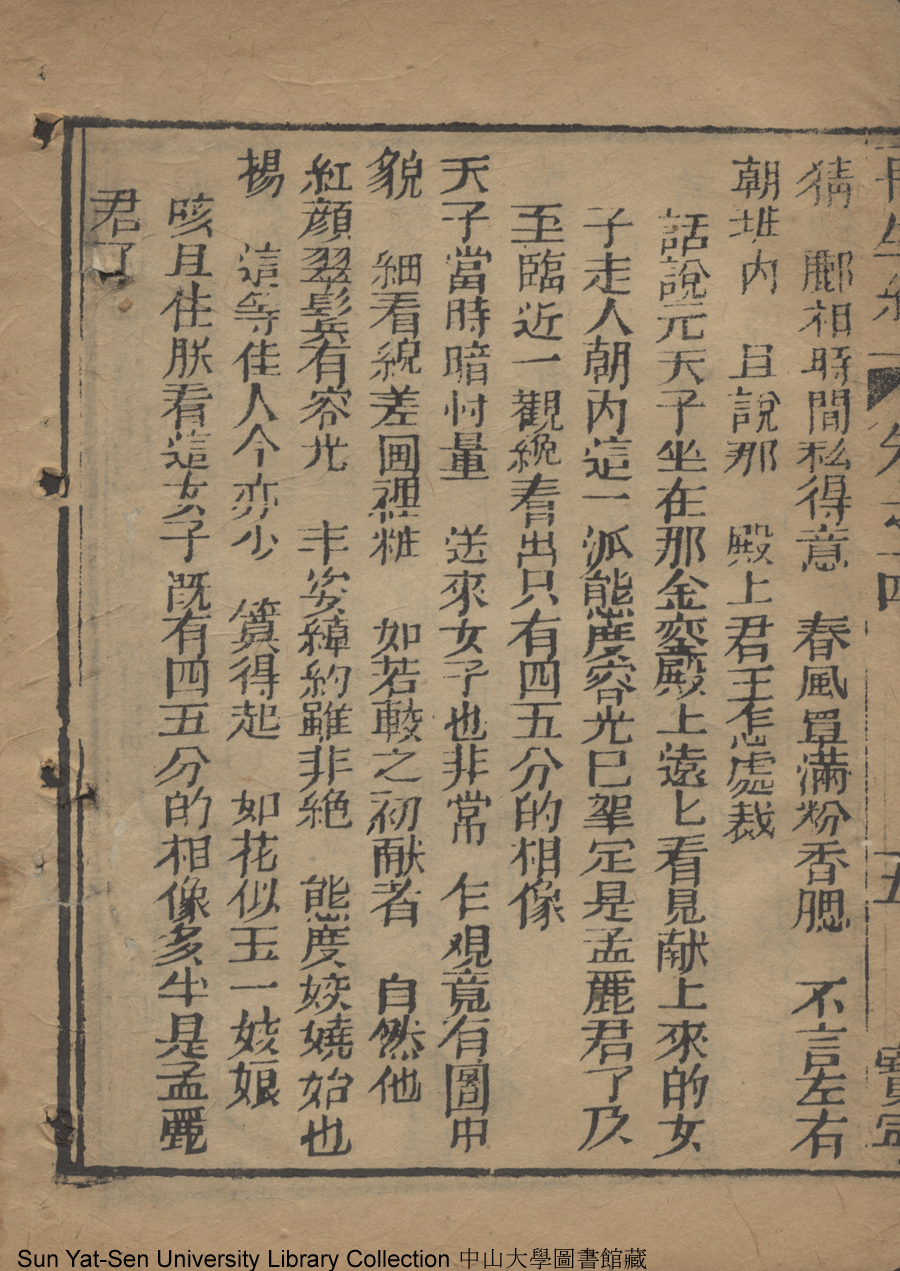 再生緣 卷之十四 五 寳寧
猜　鄜相時間私得意　春風罩滿粉香腮　不言左右
朝堆内　且說那　殿上君王怎處裁
話說元天子坐在那金鑾殿上遠匕看見献上來的女
子走人朝内這一派態度容光已睪定是孟麗君了及
至臨近一觀纔看出只有四五分的相像
天子當時暗忖量　送來女子也非常　乍观竟有圖中
貌　細看纔差画裡粧　如若較之初献者　自然他
紅顔翠鬂有容光　丰姿綽約雖非絶　態度姣嬈始也
揚　這等佳人今亦少　算得起　如花似玉一妓娘
咳且住朕看這女子既有四五分的相像多半是孟麗
君了
Sun Yat-Sen University Library Collection 中山大學圖書館藏